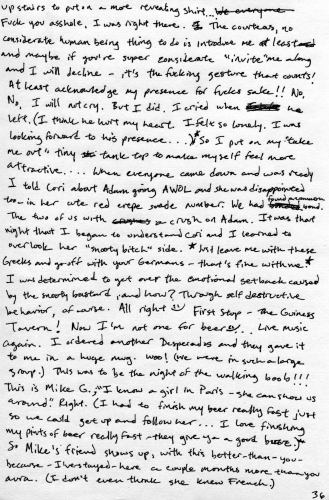 upstairs to put on a more revealing shirt...
Fuck you asshole, I was right there. The courteous, no
considerate human being thing to do is introduce me at least
and maybe if you're super considerate "invite" me along
and I will decline - it's the fucking gesture that counts!
At least acknowledge my presence for fucks sake!! No,
No, I will not cry. But I did. I cried when he
left. (I think he hurt my heart. I felt so lonely. I was
looking forward to his presence...)* So I put on my "take
me out" tiny tank top to make myself feel more
attractive.... When everyone came down and was ready
I told Lori about Adam going AWOL and she was disappointed
too - in her cute red crepe suede number. We had found a common bond.
The two of us with a crush on Adam. It was that
night that I began to understand Lori and I learned to
overlook her "snooty bitch" side. *Just leave me with these
Greeks and go off with your Germans - that's fine with me.*
I was determined to get over the emotional setback caused
by the snooty bastard, and how? Through self destructive
behavior, of course. All right First stop - The Guiness
Tavern! Now I'm not one for beer. Live music
again. I ordered another Desperados and they gave it
to me in a huge mug. woo! (We were in such a large
group.) This was to be the night of the walking boob!!!
This is Mike G., "I know a girl in Paris - she can show us
around." Right. (I had to finish my beer really fast just
so we could get up and follow her... I love finishing
my pints of beer really fast - they give ya a good buzz.)
So Mike's friend shows up, with this better-than-you-
because-I've-stayed-here a couple months more than you
aura. (I don't even think she knew French.)
36